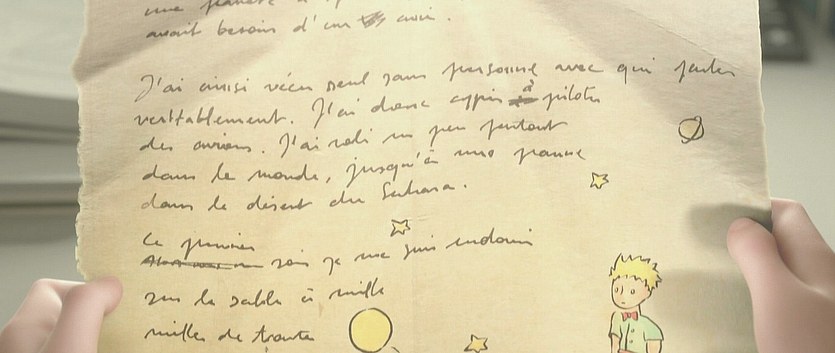 une planète
avait besoin d'un ami.
J'ai ainsi vécu seul sans personne avec qui parler
veritablement. J'ai donc appris à piloter
des avions. J'ai volé un peu partout
dans le monde, jusqu'à une panne
dans le désert du Sahara.
Ce premier
soir je me suis endormi
sur le sable à mille
milles de toute